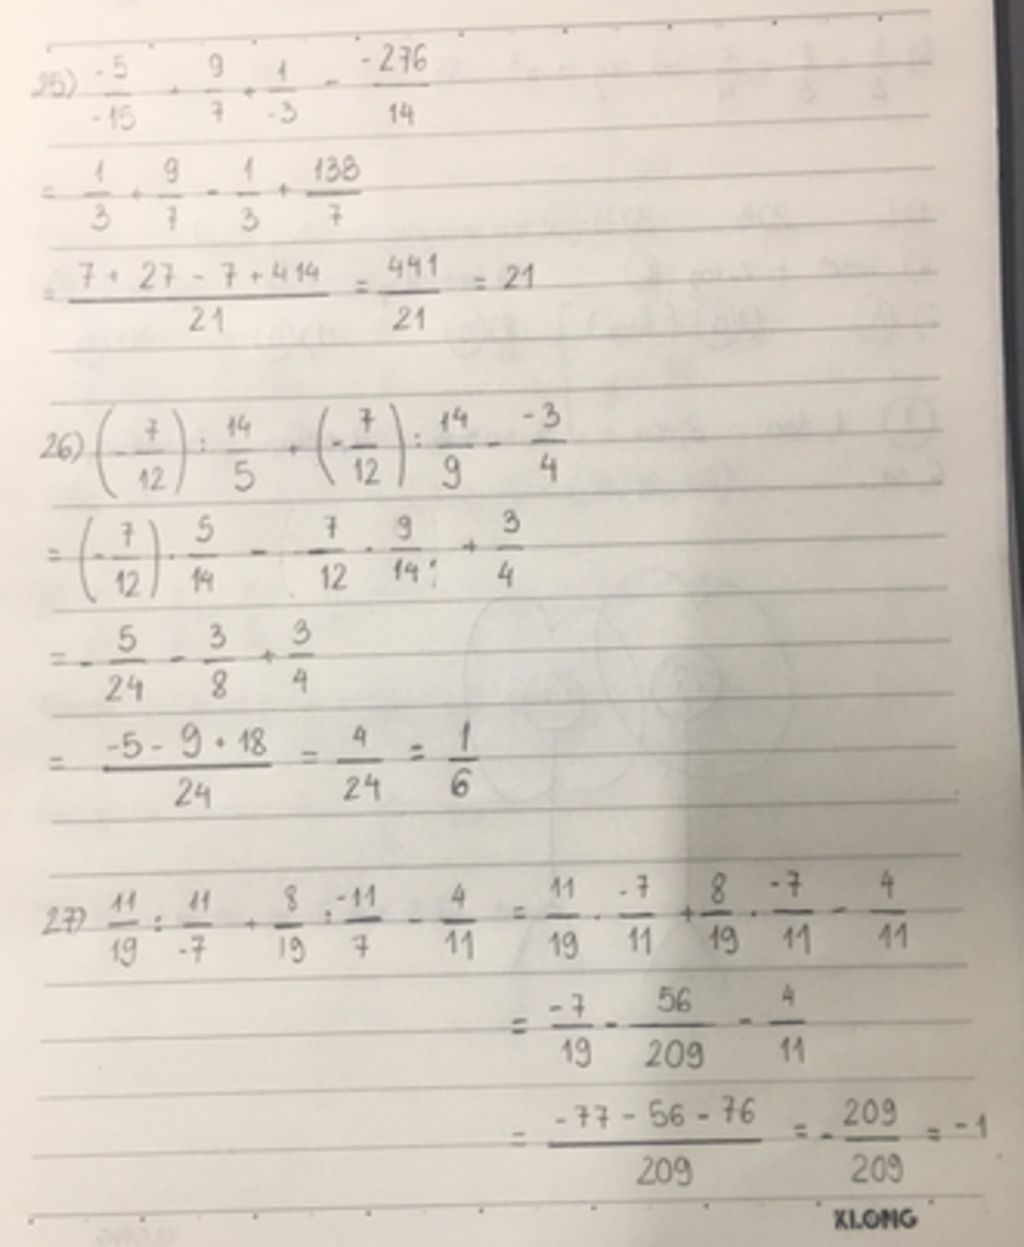 25) -5/-15 + 9/7 + 1/-3 - -276/14
= 1/3 + 9/7 - 1/3 + 138/7
= 7 + 27 - 7 + 414/21 = 441/21 = 21
26) (-7/12) : 14/5 + (-7/12) : 14/9 - -3/4
= (-7/12) . 5/14 - 7/12 . 9/14 + 3/4
= -5/24 - 3/8 + 3/4
= -5 - 9 + 18/24 = 4/24 = 1/6
27) 11/19 : 11/-7 + 8/19 : -11/7 - 4/11 = 11/19 . -7/11 + 8/19 . -7/11 - 4/11
= -7/19 - 56/209 - 4/11
= -77 - 56 - 76/209 = -209/209 = -1
XLONG